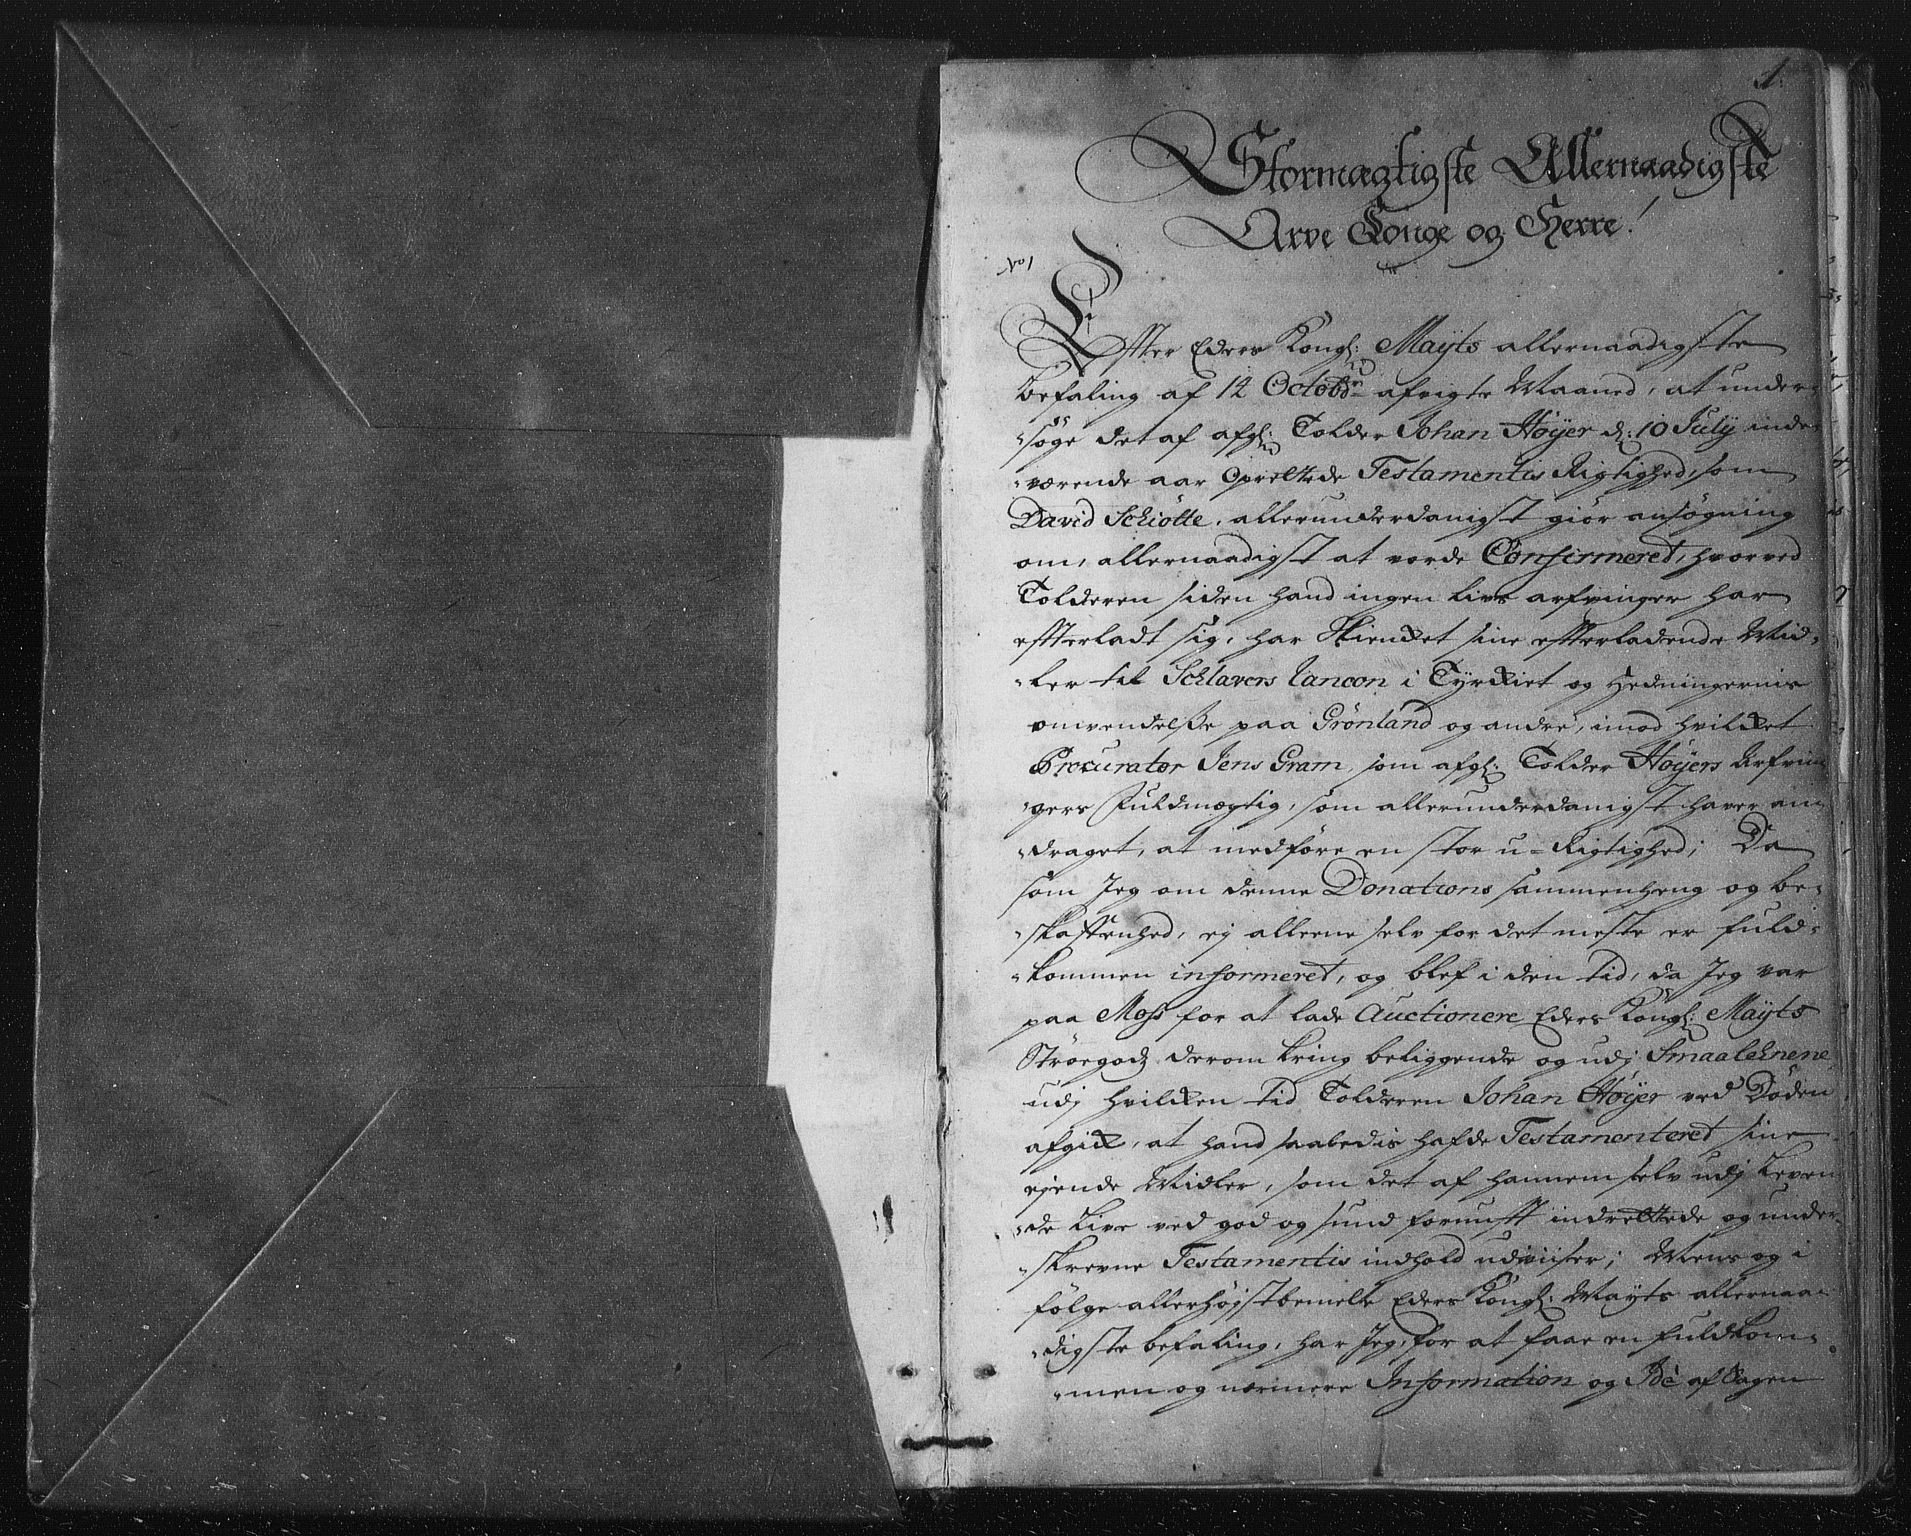 1.
Stormægtigste Allernaadigste
Arve Konge og Herre!
No 1
Effter Eders Kongl: Mayts allernaadigste
befaling af 14 Octobr afvigte Maaned, at under-
søge det af afgl: Tolder Johan Høyer d: 10 July inde-
værende aar oprettede Testamentis Rigtighed, som
David Schiötte, allerunderdanigst giør ansøgning
om, allernaadigst at vorde Confirmeret, hvorved
Tolderen siden hand ingen livs arfvinger har
effterladt sig, har skienket sine effterladende Mid-
ler til Schlavers Rancon i Tyrkiet og Hedningernis
omvendelsse paa Grønland og andre, imod hvilket
Procurator Jens Gram, som afgl: Tolder Høyers Arfvin
gers Fuldmægtig, som allerunderdanigst haver an-
draget, at medføre en stor u-Rigtighed; Da
som Jeg om denne Donations sammenheng og be-
skaffenhed, ej alleene selv for det meste er fuld-
kommen informeret, og blef i den tid, da Jeg var
paa Moss for at lade Auctionere Eders Kongl: Mayts
Strøegodz derom kring beliggende og udj Smaalehnene
udj hvilken tid Tolderen Johan Høyer ved Døden
afgik, at hand saaledis hafde Testamenteret sine
ejende Midler, som det af hannem selv udj Leven
de Live ved god og sund fornufft indrettede og under-
skrevne Testamentis indhold udviiser; Mens og i
følge allerhøjstbemelte Eders Kongl: Mayts allernaa-
digste befaling, har Jeg, for at faae en fuldkom-
men og nærmere Information og Idè af Sagen